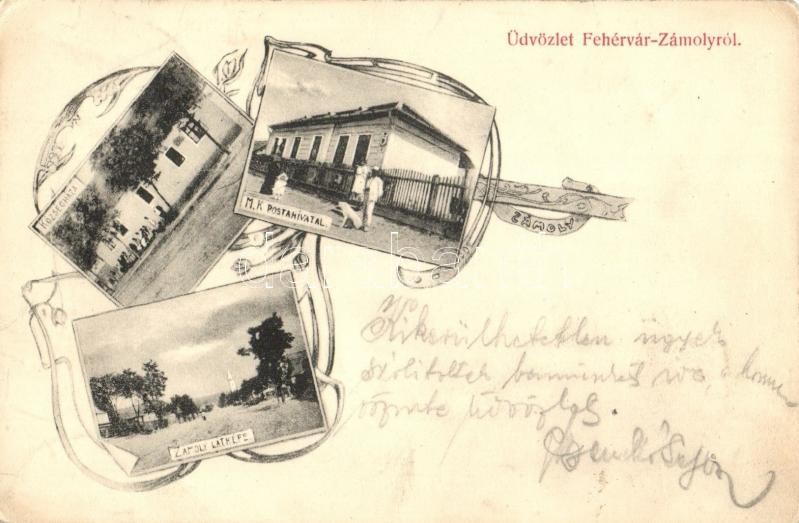 Üdvözlet Fehérvár-Zámolyról.
KÖZSÉGHÁZA
M. K. POSTAHIVATAL.
ZÁMOLY
ZÁMOLY LÁTKÉPE
darabanth
Kikerülhetetlen ügyek
szólitottak bennünket
őszinte üdvözlet.